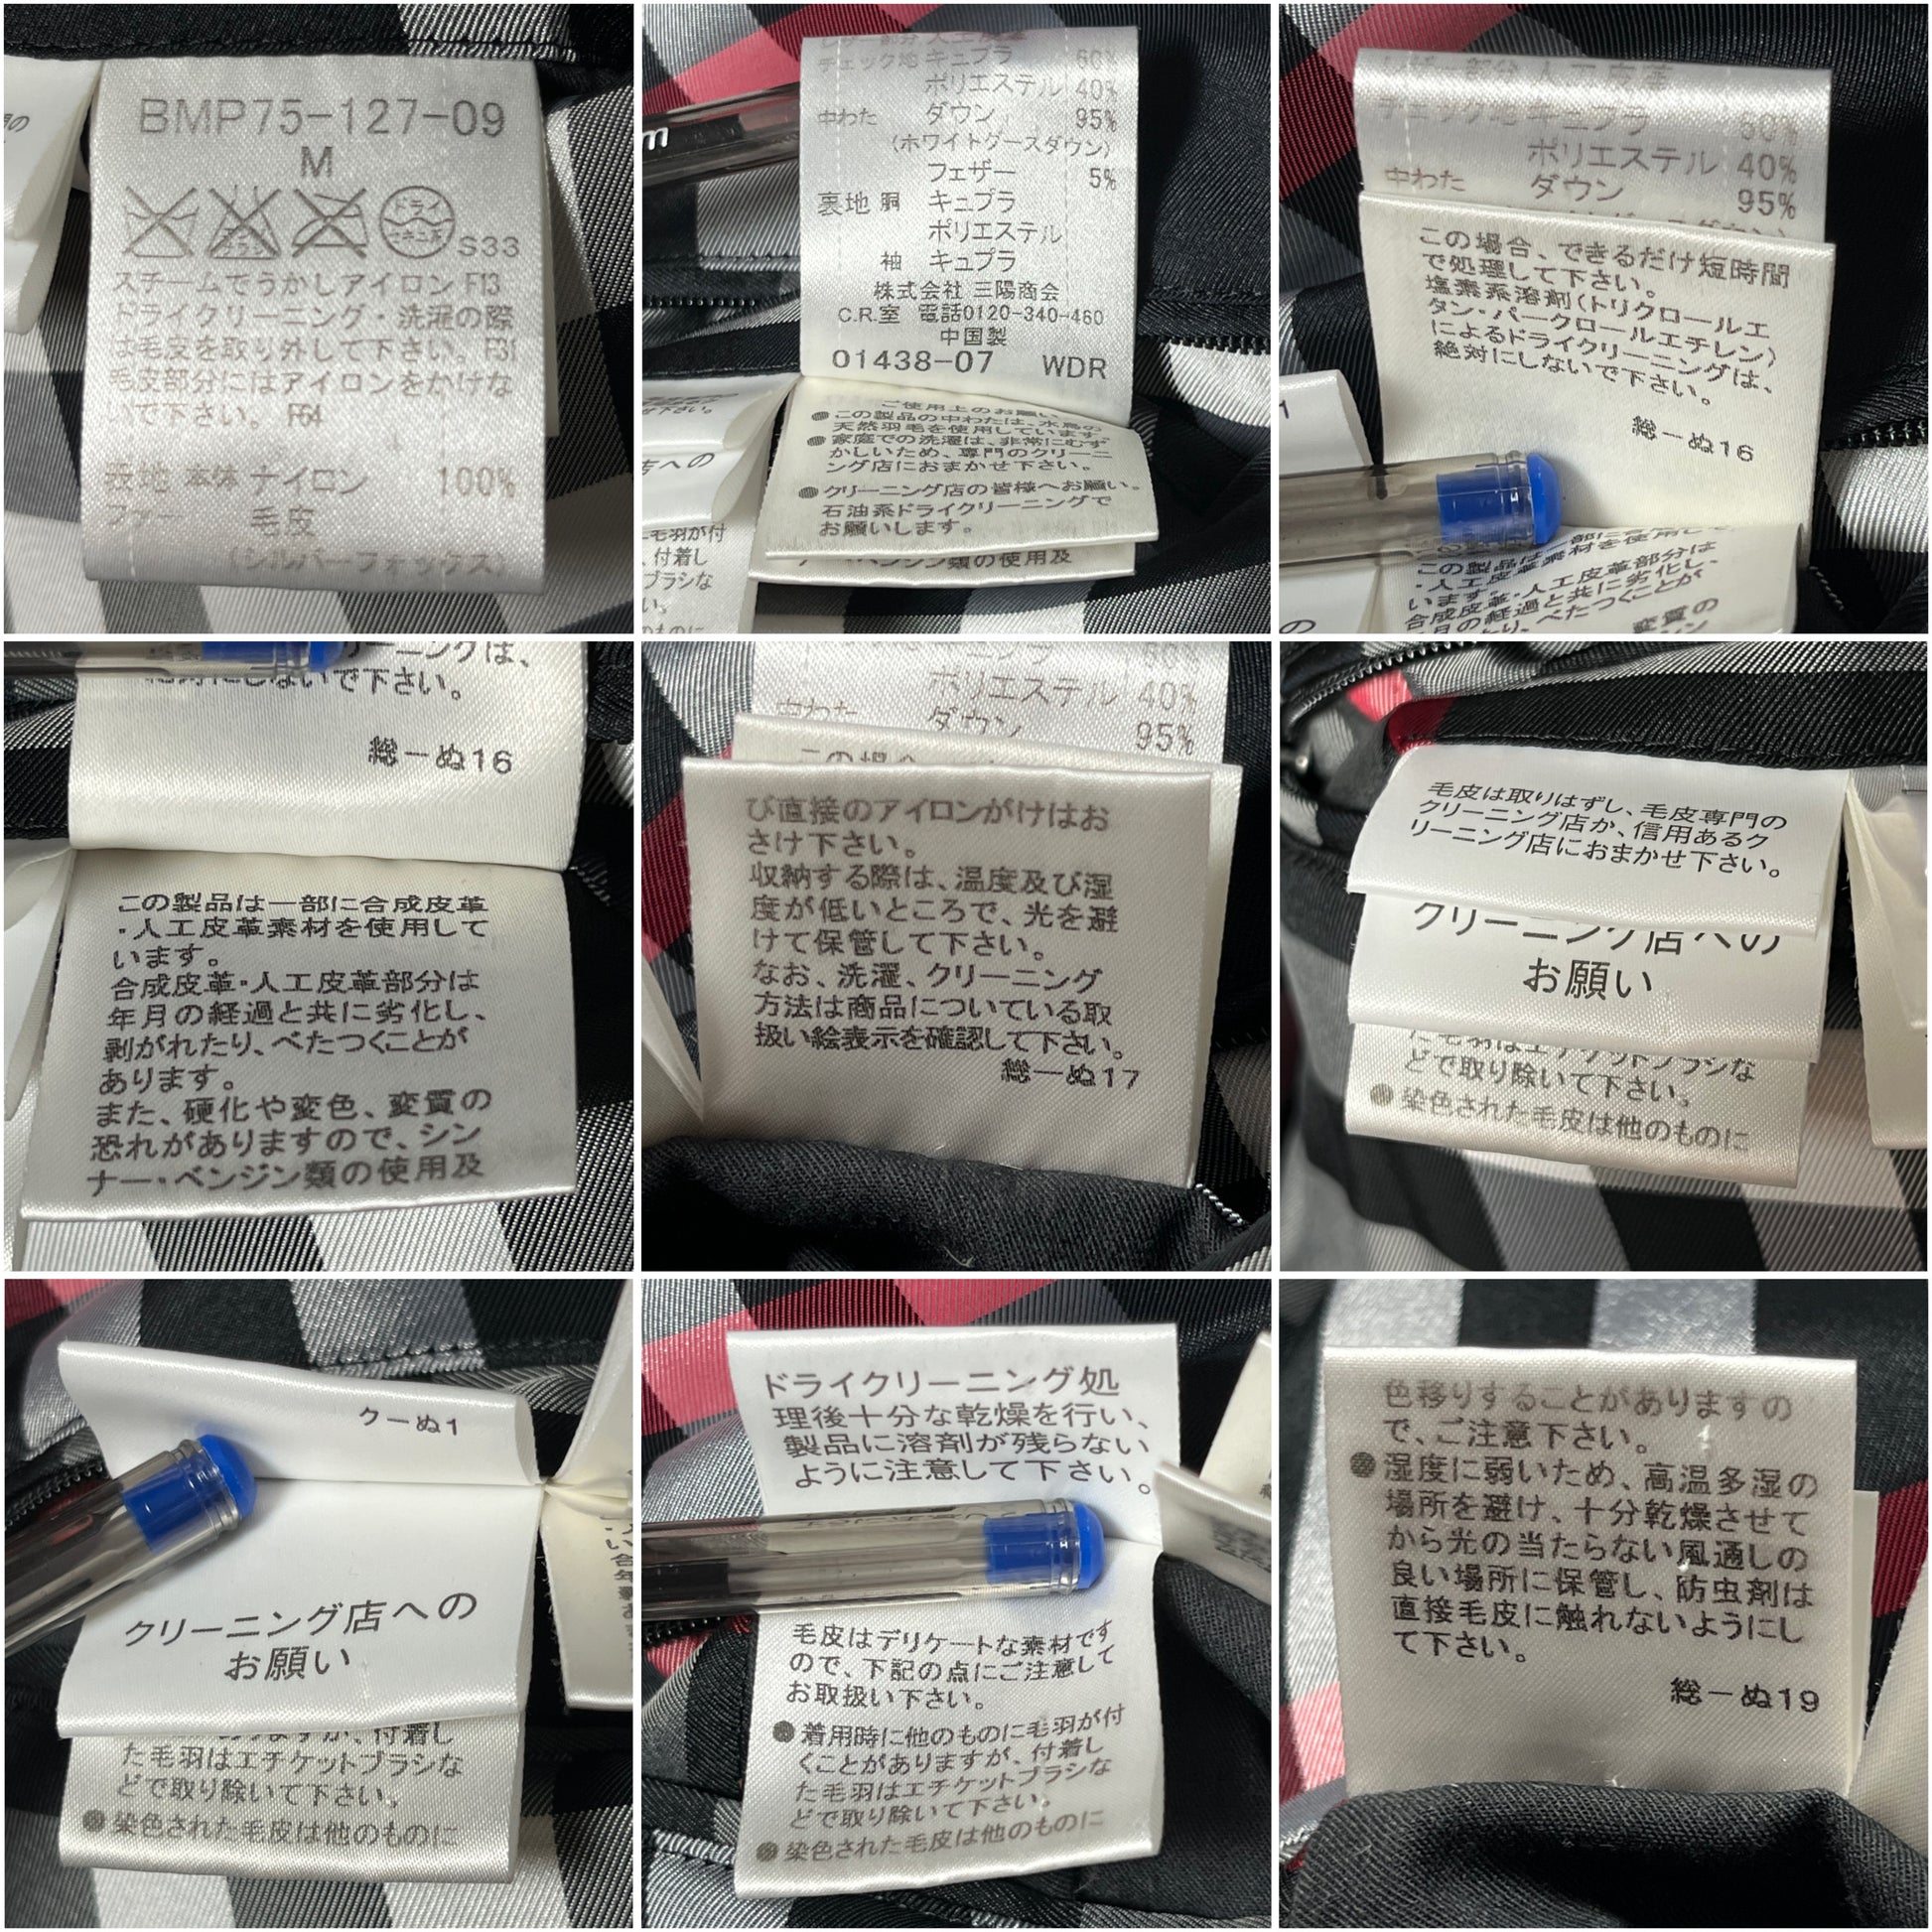 BMP75-127-09
M
ドライ
セキユ系
S33
スチームでうかしアイロン F13
ドライクリーニング・洗濯の際
は毛皮を取り外して下さい。F31
毛皮部分にはアイロンをかけな
いで下さい。 F64
表地 本体 ナイロン 100%
ファー 毛皮
(シルバーフォックス)
チェック地 キュプラ 60%
ポリエステル 40%
中わた ダウン 95%
(ホワイトグースダウン)
フェザー 5%
裏地 胴 キュプラ
ポリエステル
袖 キュプラ
株式会社 三陽商会
C.R.室 電話0120-340-460
中国製
01438-07 WDR
ご使用上のお願い
●この製品の中わたは、水鳥の
天然羽毛を使用しています。
●家庭での洗濯は、非常にむず
かしいため、専門のクリーニ
ング店におまかせ下さい。
●クリーニング店の皆様へお願い。
石油系ドライクリーニングで
お願いします。
ナー・ベンジン類の使用及
店への
毛羽が付
、付着し
ブラシな
レザー部分 人工皮革
チェック地 キュプラ 60%
ポリエステル 40%
中わた ダウン 95%
この場合、できるだけ短時間
で処理して下さい。
塩素系溶剤(トリクロールエ
タン・パークロールエチレン)
によるドライクリーニングは、
絶対にしないで下さい。
総ーぬ16
この製品は一部に合成皮革
・人工皮革素材を使用して
います。
合成皮革・人工皮革部分は
年月の経過と共に劣化し、
たり、べたつくことが
変質の
ーニングは、
絶対にしないで下さい。
総ーぬ16
この製品は一部に合成皮革
・人工皮革素材を使用して
います。
合成皮革・人工皮革部分は
年月の経過と共に劣化し、
剥がれたり、べたつくことが
あります。
また、硬化や変色、変質の
恐れがありますので、シン
ナー・ベンジン類の使用及
ポリエステル 40%
中わた ダウン 95%
この場合
び直接のアイロンがけはお
さけ下さい。
収納する際は、温度及び湿
度が低いところで、光を避
けて保管して下さい。
なお、洗濯、クリーニング
方法は商品についている取
扱い絵表示を確認して下さい。
総ーぬ17
毛皮は取りはずし、毛皮専門の
クリーニング店か、信用あるク
リーニング店におまかせ下さい。
クリーニング店への
お願い
た毛羽はエチケットブラシな
どで取り除いて下さい。
●染色された毛皮は他のものに
クーぬ1
クリーニング店への
お願い
ありますが、付着し
た毛羽はエチケットブラシな
どで取り除いて下さい。
●染色された毛皮は他のものに
ドライクリーニング処
理後十分な乾燥を行い、
製品に溶剤が残らない
ように注意して下さい。
毛皮はデリケートな素材です
ので、下記の点にご注意して
お取扱い下さい。
●着用時に他のものに毛羽が付
くことがありますが、付着し
た毛羽はエチケットブラシな
どで取り除いて下さい。
●染色された毛皮は他のものに
色移りすることがありますの
で、ご注意下さい。
●湿度に弱いため、高温多湿の
場所を避け、十分乾燥させて
から光の当たらない風通しの
良い場所に保管し、防虫剤は
直接毛皮に触れないようにし
て下さい。
総ーぬ19